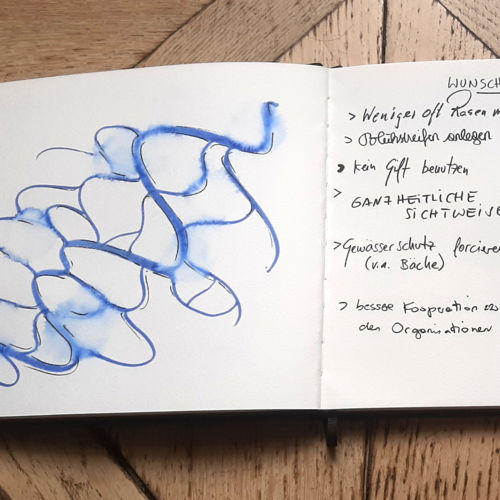 WUNSCH
> Weniger oft Rasen m
> Blühstreifen anlegen
> kein Gift benutzen
> GANZHEITLICHE
SICHTWEISE
> Gewässerschutz forcieren
(v.a. Bäche)
> bessere Kooperation
den Organisationen